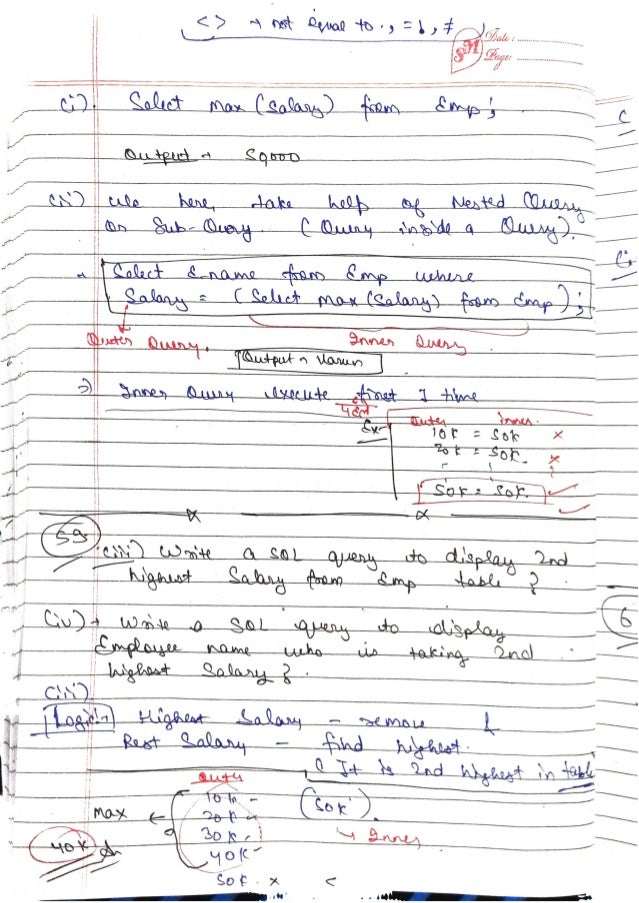 <> → not equal to., = !, ≠
SM Date: ............
Page: ............
(i) Select max (Salary) from Emp;
Output → 50000
(ii) We here, take help of Nested Query
or Sub-Query. (Query inside a Query).
Select E-name from Emp where
Salary = (Select max (Salary) from Emp);
Outer Query. Inner Query
Output → Varun
=> Inner Query execute first 1 time
पहले
Ex- Outer inner.
10k = 50k ×
20k = 50k. ×
50k = 50k.
59
(iii) Write a SQL query to display 2nd
highest Salary from Emp table ?
(iv) → Write a SQL query to display
Employee name who is taking 2nd
highest Salary ?
(iii)
Logic:→ Highest Salary - remove &
Rest Salary - find highest.
It is 2nd highest in table
6
Outer
10k -
20k -
30k -
40k -
50k . × <
max
(50k).
→ Inner
40k